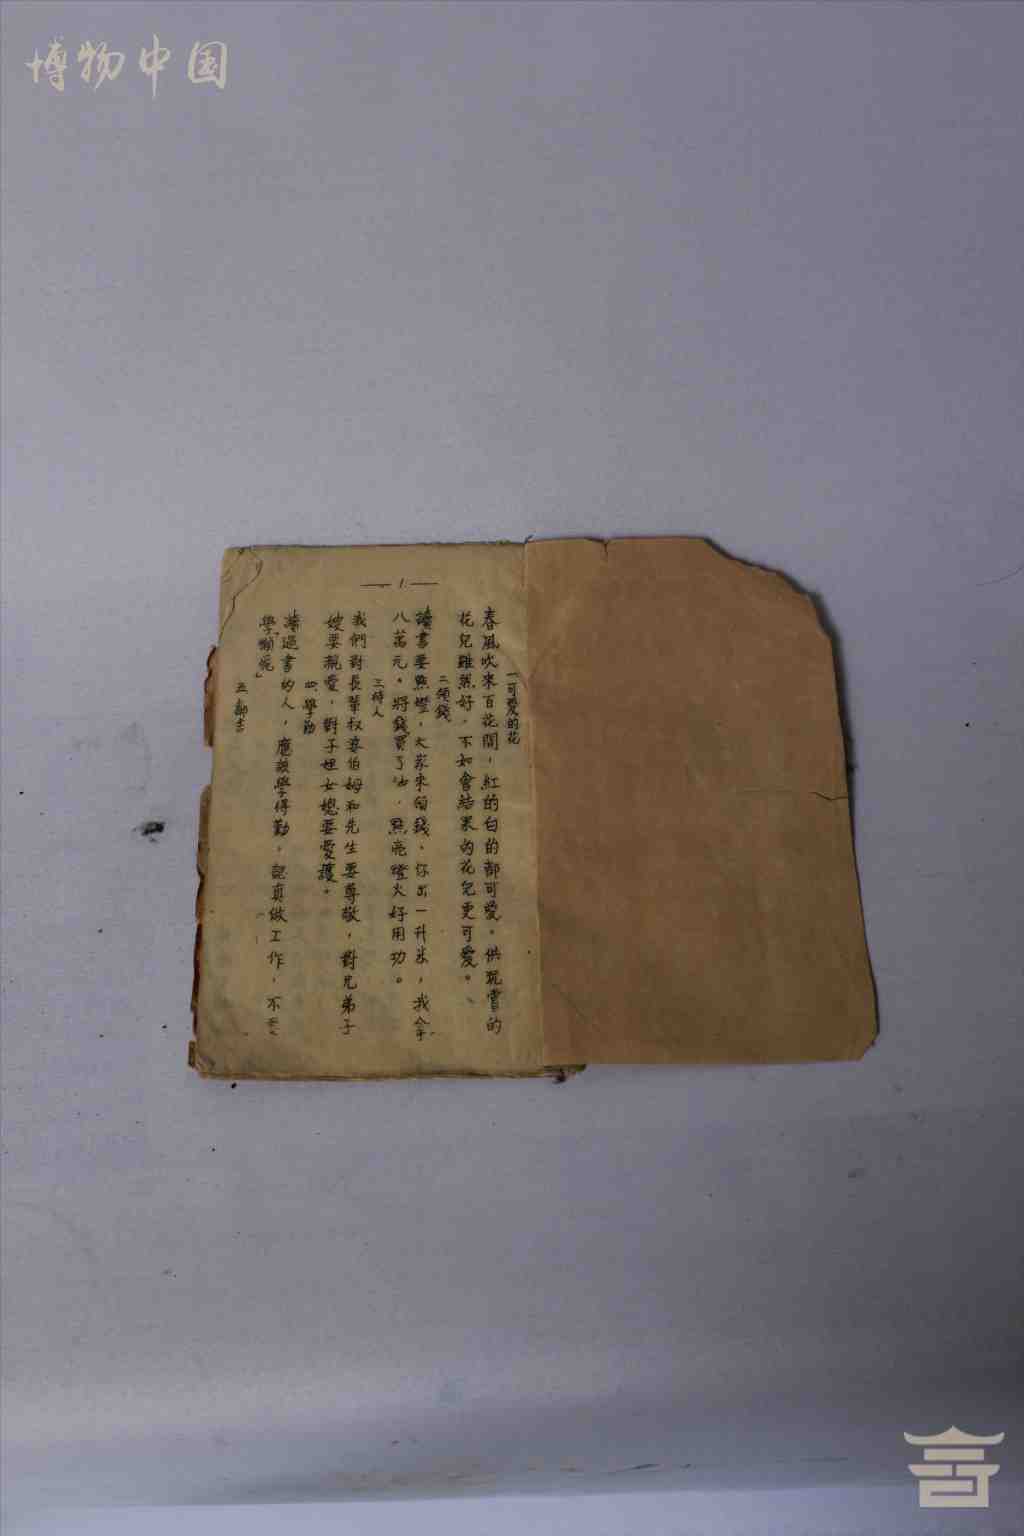 博物中国
— 1 —
一可愛的花
春風吹來百花開，紅的白的都可愛。供玩賞的
花兒雖然好，不如會結果的花兒更可愛。
二領錢
讀書要點燈，大家來領錢、你出一升米，我拿
八萬元。將錢買了油，點亮燈火好用功。
三待人
我們對長輩叔婆伯姆和先生要尊敬，對兄弟子
嫂要親愛，對子姪女媳要愛護。
四、學勤
讀過書的人，應該學得勤，認真做工作，不要
學「懶
五